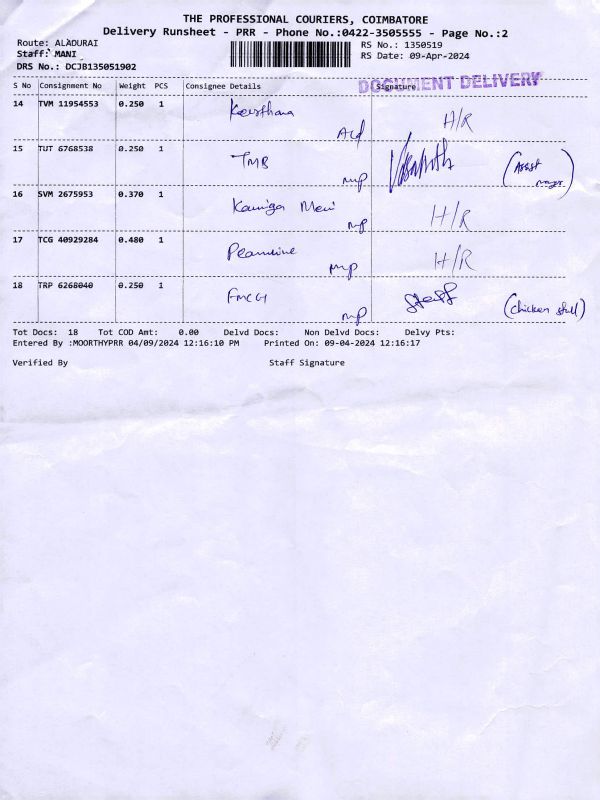 THE PROFESSIONAL COURIERS, COIMBATORE
Delivery Runsheet - PRR - Phone No.:0422-3505555 - Page No.:2
Route: ALADURAI
Staff: MANI
DRS No.: DCJB135051902
RS No.: 1350519
RS Date: 09-Apr-2024
DOCUMENT DELIVERY
S No Consignment No Weight PCS Consignee Details Signature
14 TVM 11954553 0.250 1 Keerthana H/R
15 TUT 6768538 0.250 1 TMB
mp
16 SVM 2675953 0.370 1 H/R
mp
17 TCG 40929284 0.480 1 H/R
mp
18 TRP 6268040 0.250 1 FMCG (Chicken stall)
mp
Tot Docs: 18 Tot COD Amt: 0.00 Delvd Docs: Non Delvd Docs: Delvy Pts:
Entered By :MOORTHYPRR 04/09/2024 12:16:10 PM Printed On: 09-04-2024 12:16:17
Verified By Staff Signature